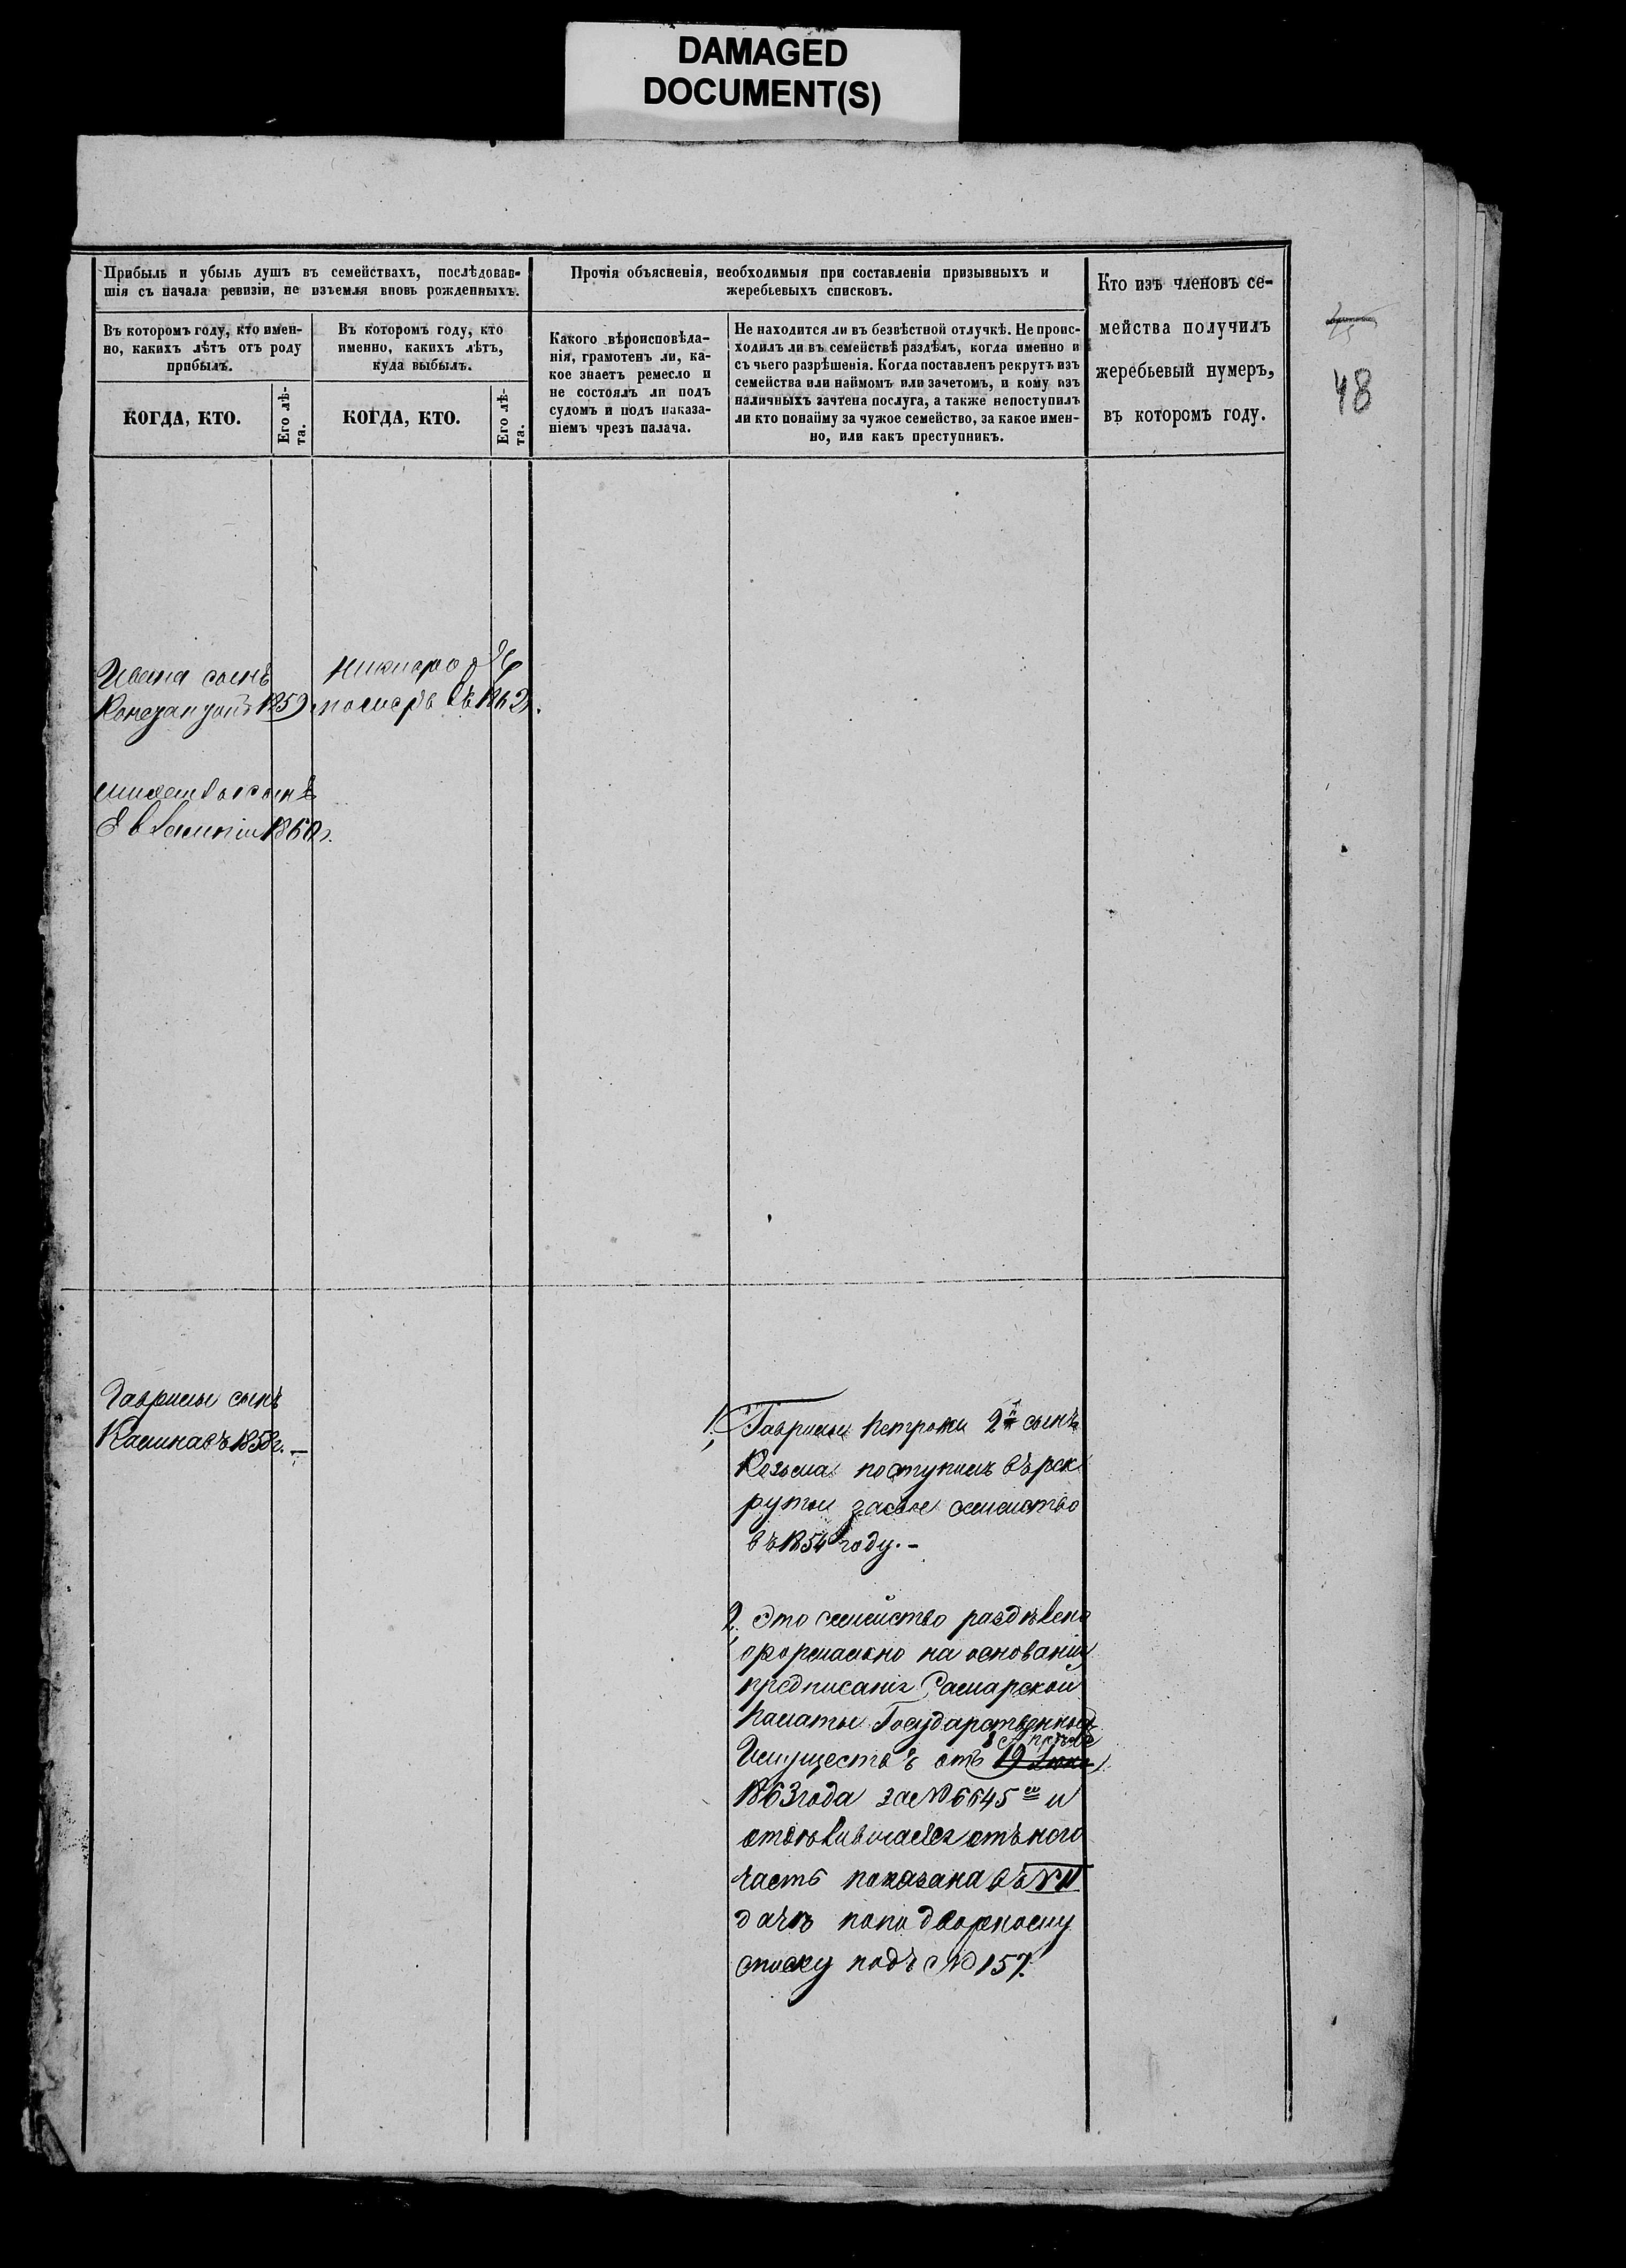 DAMAGED
DOCUMENT(S)
Прибыль и убыль душъ въ семействахъ, послѣдовав-
шія съ начала ревизіи, не изъемля вновь рожденныхъ.
Въ которомъ году, кто имен-
но, какихъ лѣтъ отъ роду
прибылъ.
КОГДА, КТО.
Его лѣ-
та.
Въ которомъ году, кто
именно, какихъ лѣтъ,
куда выбылъ.
КОГДА, КТО.
Его лѣ-
та.
Прочія объясненія, необходимыя при составленіи призывныхъ и
жеребьевыхъ списковъ.
Какого вѣроисповѣда-
нія, грамотенъ ли, ка-
кое знаетъ ремесло и
не состоялъ ли подъ
судомъ и подъ наказа-
ніемъ чрезъ палача.
Не находится ли въ безвѣстной отлучкѣ. Не проис-
ходилъ ли въ семействѣ раздѣлъ, когда именно и
съ чьего разрѣшенія. Когда поставленъ рекрутъ изъ
семейства или наймомъ или зачетомъ, и кому изъ
наличныхъ зачтена послуга, а также непоступилъ
ли кто понайму за чужое семейство, за какое имен-
но, или какъ преступникъ.
Кто изъ членовъ се-
мейства получилъ
жеребьевый нумеръ,
въ которомъ году.
48
Ивана сынъ
1859
въ 1862
сынъ
1860г.
Гаврилы сынъ
Калина въ 1858г. —
1. Гаврилы Петрова 2й сынъ
Козьма поступилъ въ рек
руты за свое семейство
въ 1854 году. -
2. Это семейство раздѣлено
формально на основаніи
предписанія Самарской
Палаты Государственныхъ
8 Апрѣля
Имуществъ отъ 19 Іюня
1863 года за № 6645 м и
отдѣлившаяся отъ него
часть показана въ № II
дачѣ по подворному
списку подъ № 157.